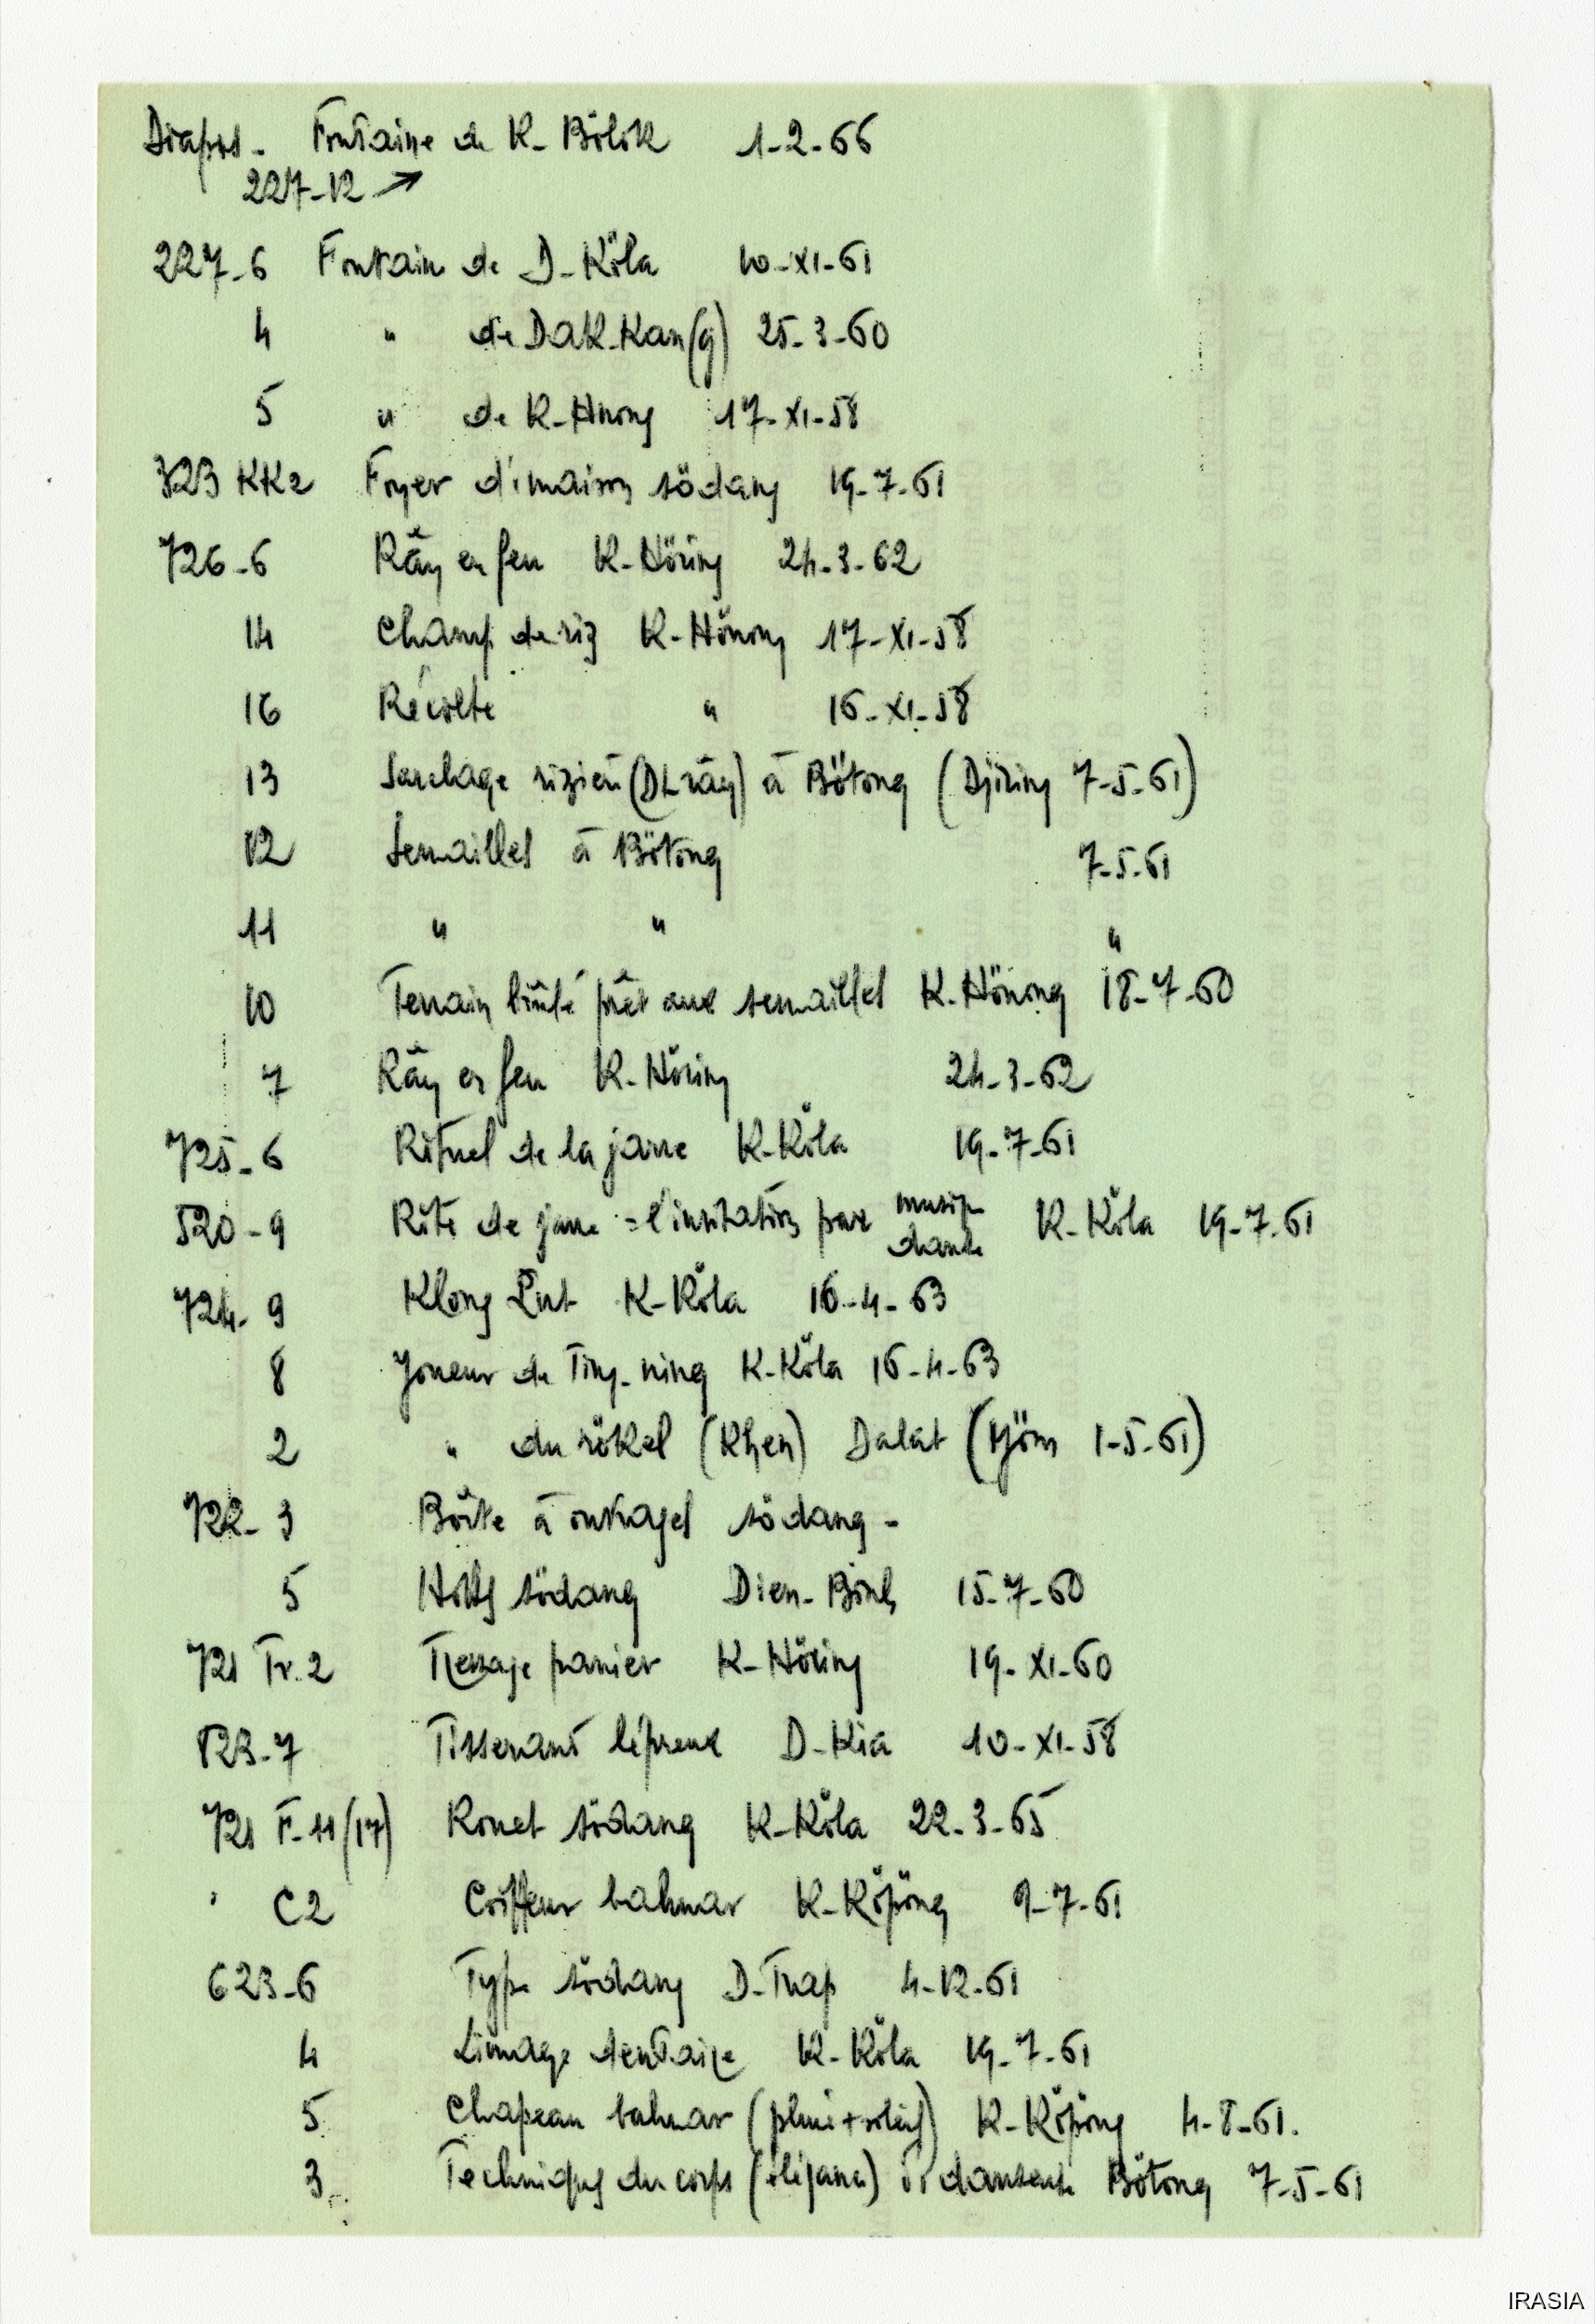 Diapos - Fontaine de K- Bölök 1-2-66
227-12 →
227-6 Fontaine de D- Köla 10-XI-61
4 " de Dak Kan(g) 25-3-60
5 " de K- Hnong 17-XI-58
323 KK2 Foyer d'1 maison södang 19-7-61
726-6 Rẫy en feu K- Höring 24-3-62
14 Champ de riz K- Hönong 17-XI-58
16 Récolte " 16-XI-58
13 Sarclage rizière (DL rẫy) à Bötong (Djiring 7-5-61)
12 Semailles à Bötong 7-5-61
11 " " "
10 Terrain brûlé prêt aux semailles K- Hönong 18-7-60
7 Rẫy en feu K- Höring 24-3-62
725-6 Rituel de la jarre K- Köla 19-7-61
520-9 Rite de jarre = l'invitation par musique danse K- Köla 19-7-61
724-9 Klong Put K- Köla 16-4-63
8 Joueur de Ting-ning K- Köla 16-4-63
2 " du rökel (Khen) Dalat ( 1-5-61)
722-3 Boîte à södang -
5 Hotte södang Dien-Binh 15-7-60
721 Tr.2 Tressage panier K- Höring 19-XI-60
123-7 Tisserand lépreux D- Kia 10-XI-58
721 F-11 (17) Rouet södang K- Köla 22-3-65
" C2 Coiffeur bahnar K- Köpöng 9-7-61
623-6 Type södang D- Trap 4-12-61
4 Limage dentaire K- Köla 19-7-61
5 Chapeau bahnar (pluie + soleil) K- Köpöng 4-8-61.
3 Techniques du corps (élégance) danseuse Bötong 7-5-61
IRASIA